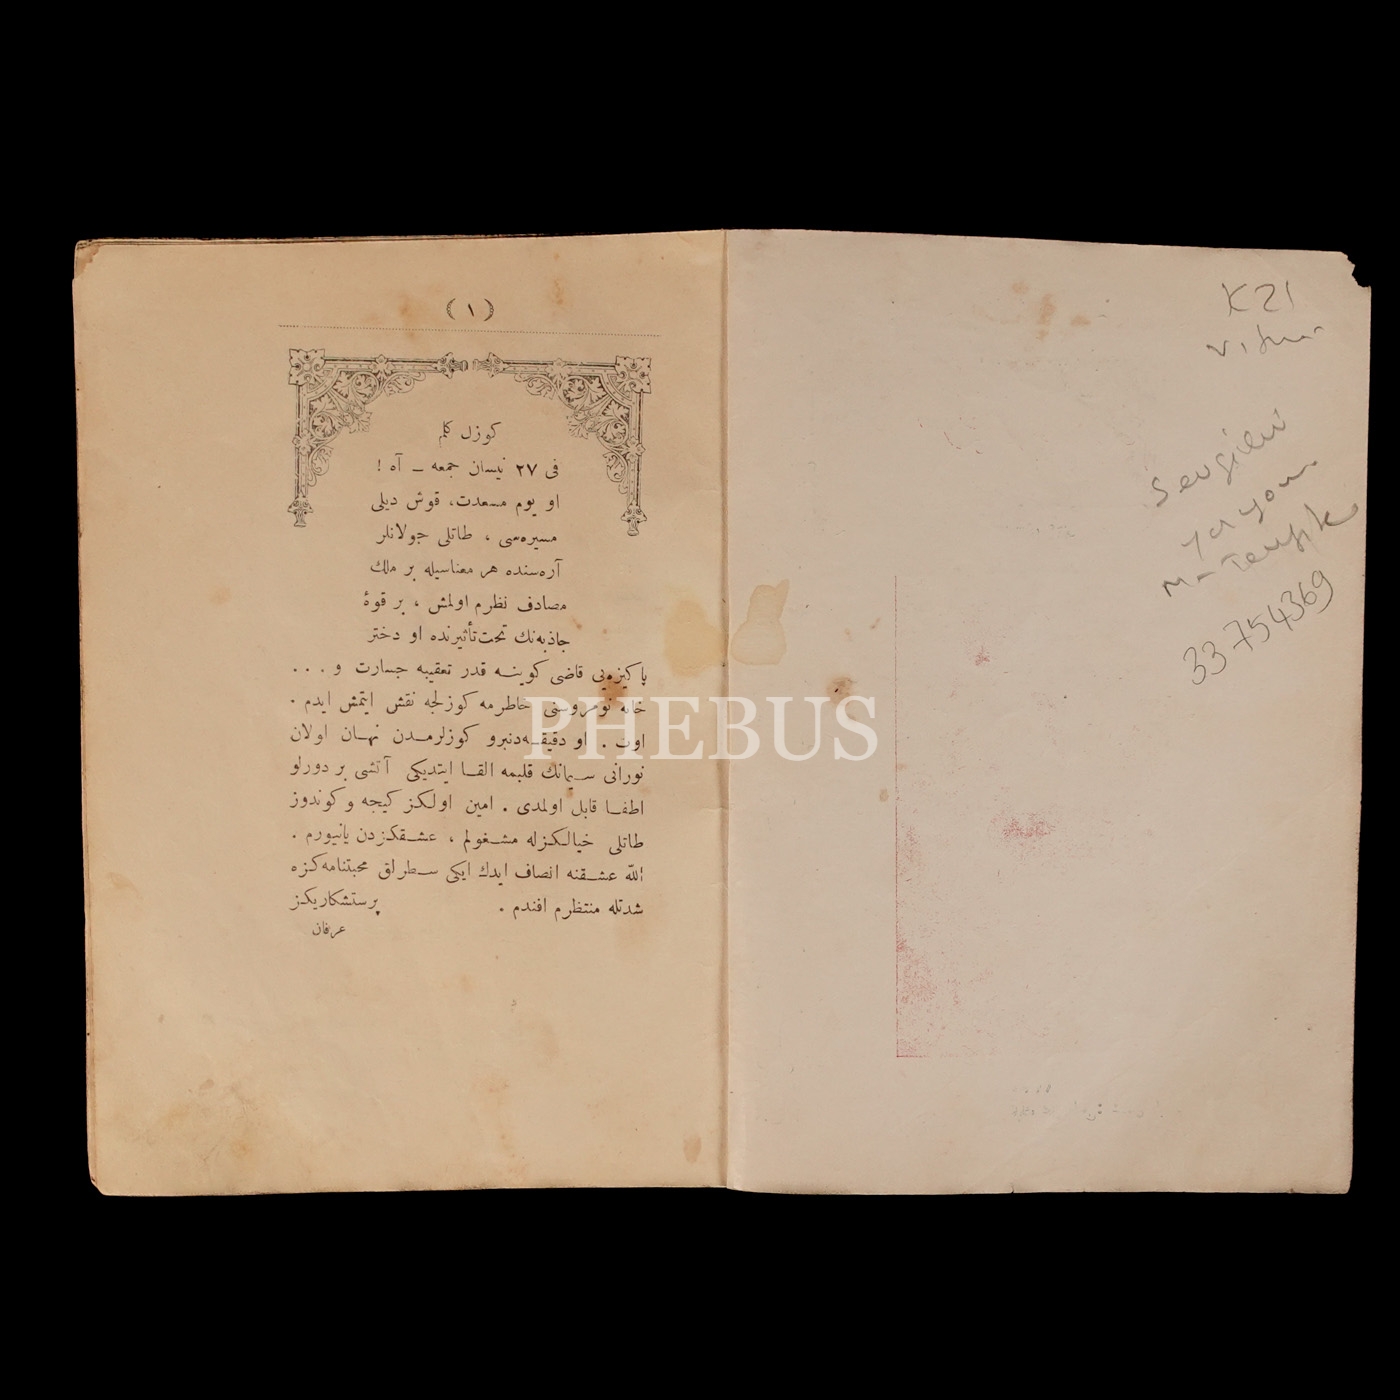 ( ١ )
كوزل كلم
فى ٢٧ نيسان جمعه ــ آه !
او يوم مسعدت، قوش ديلى
مسيره‌سى ، طاتلى جولانلر
آره‌سنده هر معناسيله بر ملك
مصادف نظرم اولمش ، بر قوۀ
جاذبه‌نك تحت‌تأثيرنده او دختر
پاكيزه‌يى قاضى كوينه قدر تعقيبه جسارت و ...
خانه نومروسنى خاطرمه كوزلجه نقش ايتمش ايدم .
اوت . او دقيقه‌دنبرو كوزلرمدن نهان اولان
نورانى سيمانك قلبمه القا ايتديكى آتشى بر دورلو
اطفا قابل اولمدى . امين اولكز كيجه و كوندوز
طاتلى خيالكزله مشغولم ، عشقكزدن يانيورم .
الله عشقنه انصاف ايدك ايكى سطرلق محبتنامه‌كزه
شدتله منتظرم افندم . پرستشكاريكز
عرفان
K21
PHEBUS
33754369